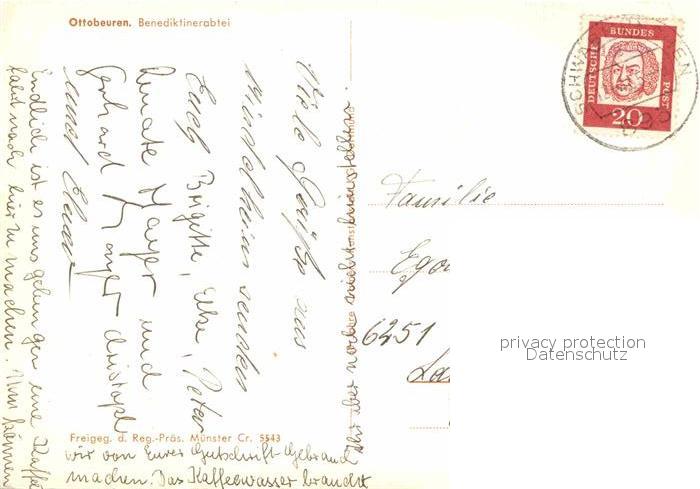 Ottobeuren. Benediktinerabtei
Viele Grüße aus
Mindelheim senden
Euch Brigitte, Elke, Peter
Renate Mayer und
Gerhard Mayer Christoph
und Elmar
Endlich ist es uns gelungen eine Kaffee
fahrt nach hier zu machen. Nun können
wir von Eurer Gutschrift Gebrauch
machen. Das Kaffeewasser braucht
Ihr aber noch nicht
Freigeg. d. Reg.-Präs. Münster Cr. 5543
Familie
Egon
6251
DEUTSCHE BUNDES POST
20
SCHWAB
privacy protection
Datenschutz